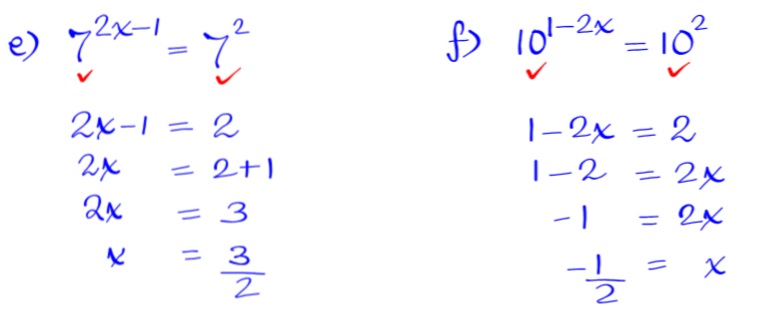 e) 7^{2x-1} = 7^2
✓ ✓
2x-1 = 2
2x = 2+1
2x = 3
x = 3/2
f) 10^{1-2x} = 10^2
✓ ✓
1-2x = 2
1-2 = 2x
-1 = 2x
-1/2 = x